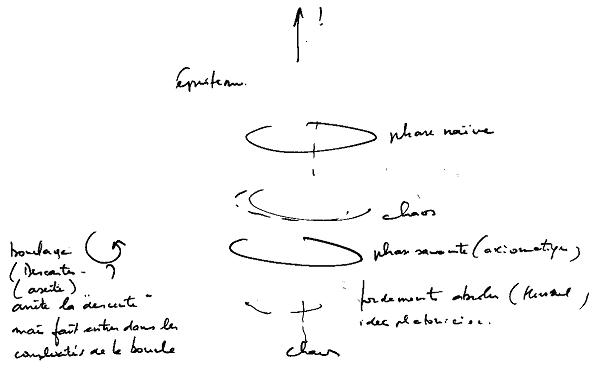 !
phase naïve
?
chaos
phase savante (axiomatique)
bouclage
(Descartes -
(aséité)
arrête la "descente"
mais fait entrer dans les
complexités de la boucle
fondement absolu (Husserl,
idées platoniciennes.
chaos